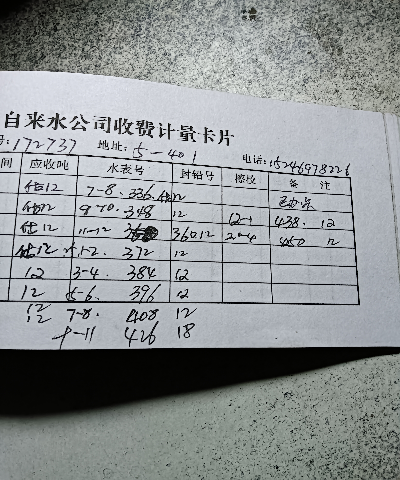 自来水公司收费计量卡片
号:172737 地址:5-401 电话:15246978226
间 应收吨 水表号 封铅号 检收 备注
估12 7-8. 336 估12
估12 9-10. 348 12 12-1 438. 12
估12 11-12 36012 2-4 450 12
估12 1-2. 372 12
12 3-4. 384 12
12 5-6. 396 12
12 7-8. 408 12
12 9-11 426 18